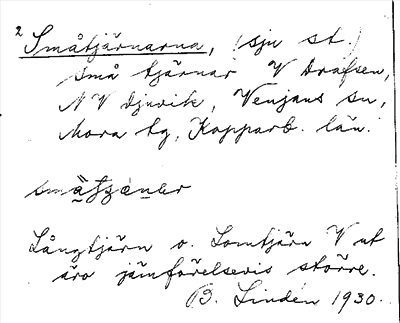 2 Småtjärnarna, (sju st.)
små tjärnar V Drafsen,
NV Djurvik, Venjans sn,
Mora tg, Kopparb. län.
Långtjärn o. Lomtjärn V ut
äro jämförelsevis större.
B. Lindén 1930.